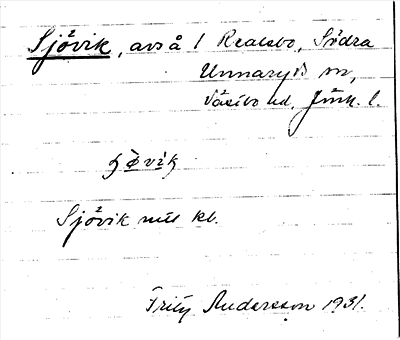 Sjövik, avs å 1 Realsbo, Södra
Unnaryds sn,
Västbo hd, Jönk. l.
Sjövik
Fritz Andersson 1931.